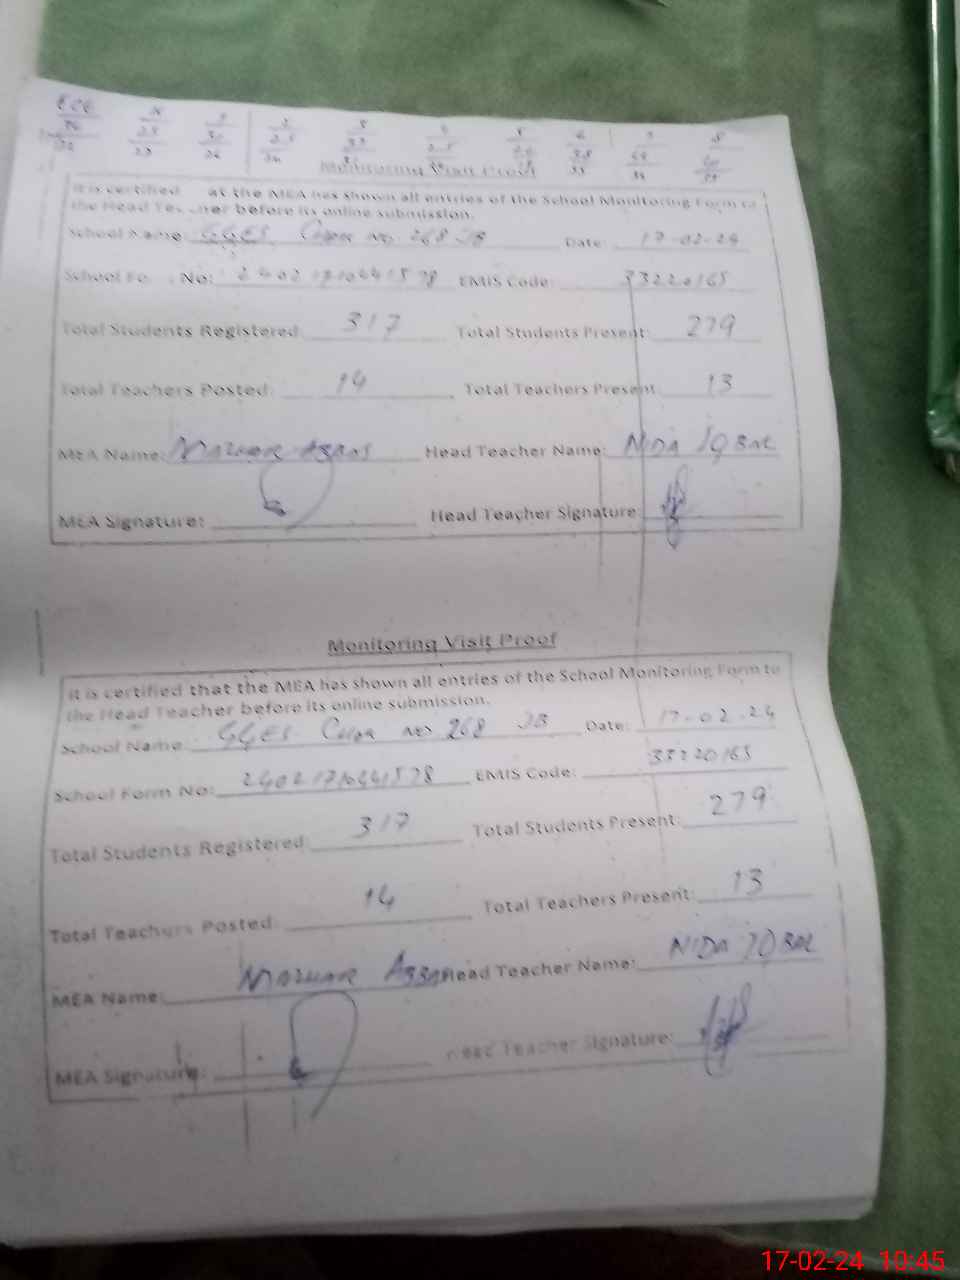 ECE
Monitoring Visit Proof
It is certified at the MEA has shown all entries of the School Monitoring Form to
the Head before its online submission.
School Name: GGES Chak No 268 JB Date: 17-02-24
School Fo No: EMIS Code: 33220165
Total Students Registered: 317 Total Students Present: 279
Total Teachers Posted: 14 Total Teachers Present: 13
MEA Name: Mazhar Abbas Head Teacher Name: NIDA IQBAL
MEA Signature: Head Teacher Signature:
Monitoring Visit Proof
It is certified that the MEA has shown all entries of the School Monitoring Form to
the Head Teacher before its online submission.
School Name: GGES Chak No 268 JB Date: 17-02-24
School Form No: EMIS Code: 33220165
Total Students Registered: 317 Total Students Present: 279
Total Teachers Posted: 14 Total Teachers Present: 13
MEA Name: Mazhar Abbas Head Teacher Name: NIDA IQBAL
MEA Signature: Head Teacher Signature:
17-02-24 10:45